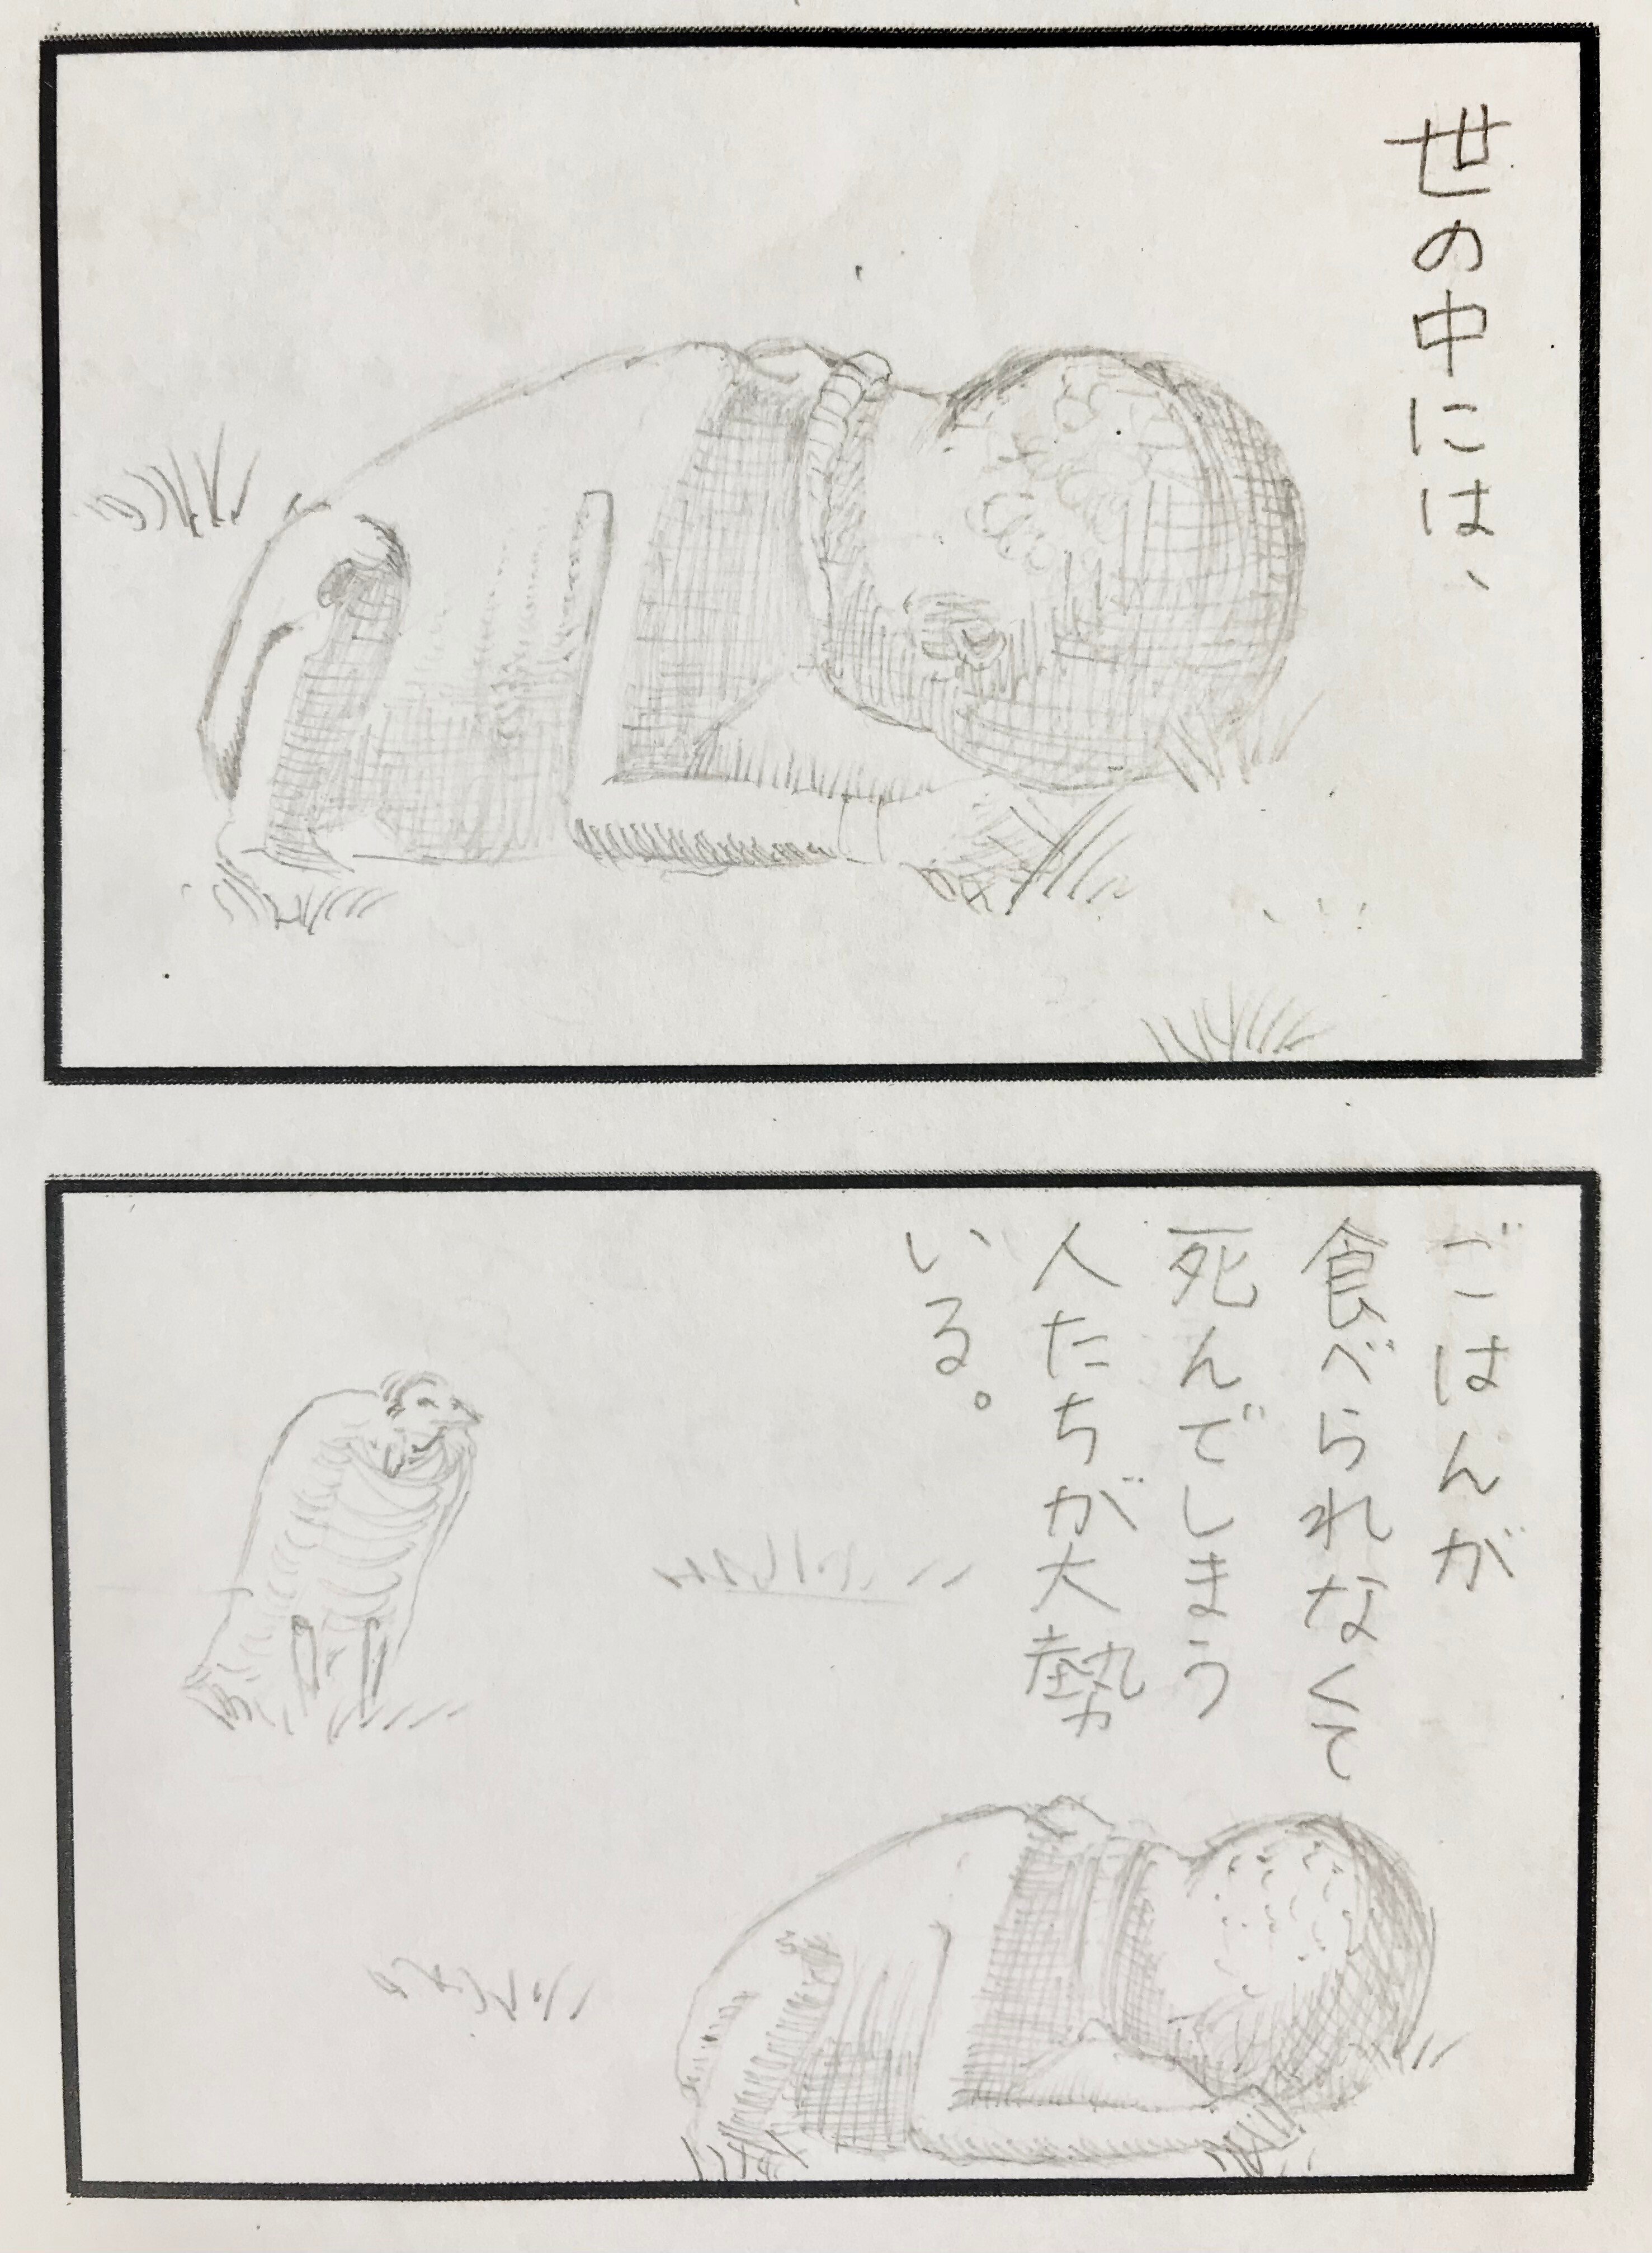 世の中には、
ごはんが
食べられなくて
死んでしまう
人たちが大勢
いる。